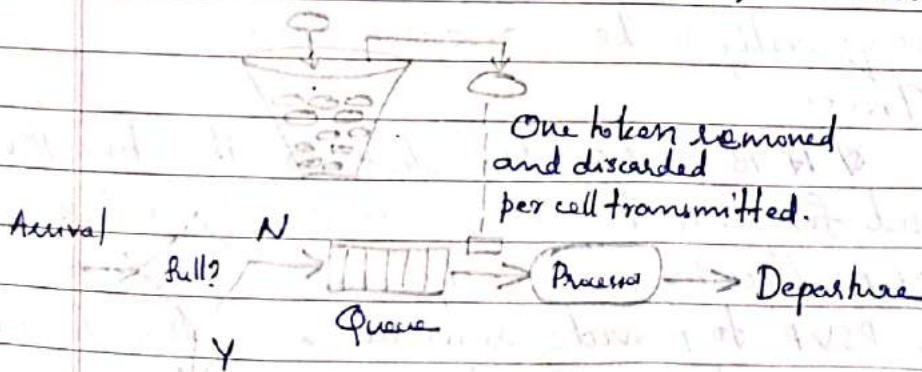 One token removed
and discarded
per cell transmitted.
Arrival
N
full?
Processor
Departure
Queue
Y